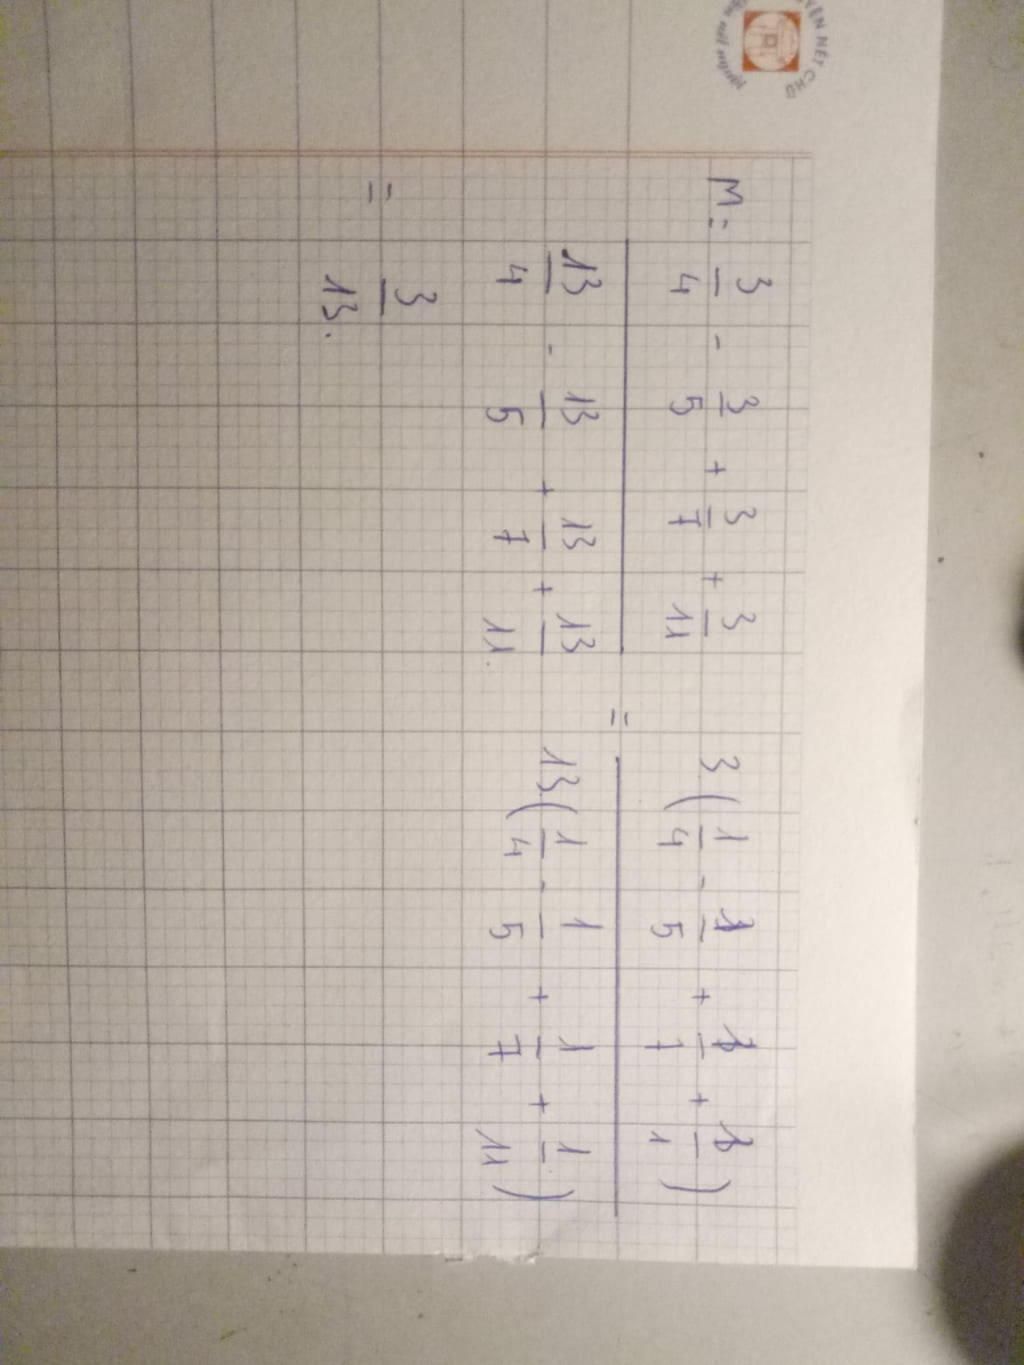 M = \frac{\frac{3}{4} - \frac{3}{5} + \frac{3}{7} + \frac{3}{11}}{\frac{13}{4} - \frac{13}{5} + \frac{13}{7} + \frac{13}{11}} = \frac{3(\frac{1}{4} - \frac{1}{5} + \frac{1}{7} + \frac{1}{1})}{13(\frac{1}{4} - \frac{1}{5} + \frac{1}{7} + \frac{1}{11})}
= \frac{3}{13}.